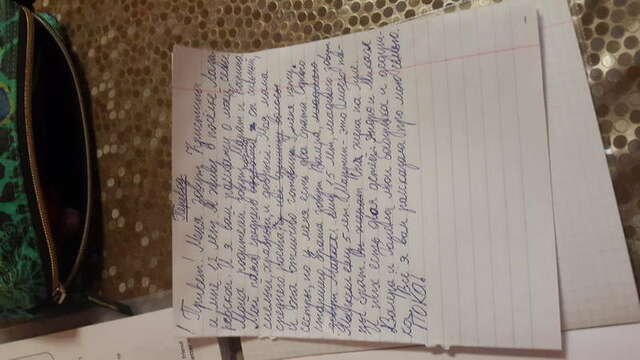 Перевод
! Привет! Меня зовут Кристина
и мне 12 лет. Я живу в посёлке Лаза-
ревской. И я вам расскажу о моей семье.
Моих родителей зовут Марат и Карина.
Мой папа среднего он умный,
смелый, храбрый и добрый. Моя мама
среднего роста, у неё волосы
и она отлично готовит. У меня нету
сестры, но у меня есть два брата. Одного
старшего брата зовут Валера, младшего
зовут ему 15 лет, младшего зовут
ему 5 лет. Мартин - это моего па-
пы брат. Он женат Его жена
У них есть двоя детей - и Микаэл
Валера и мои бабушка и дедуш-
ка. Всё я вам рассказала про мою семью.
ПОКА!
friend